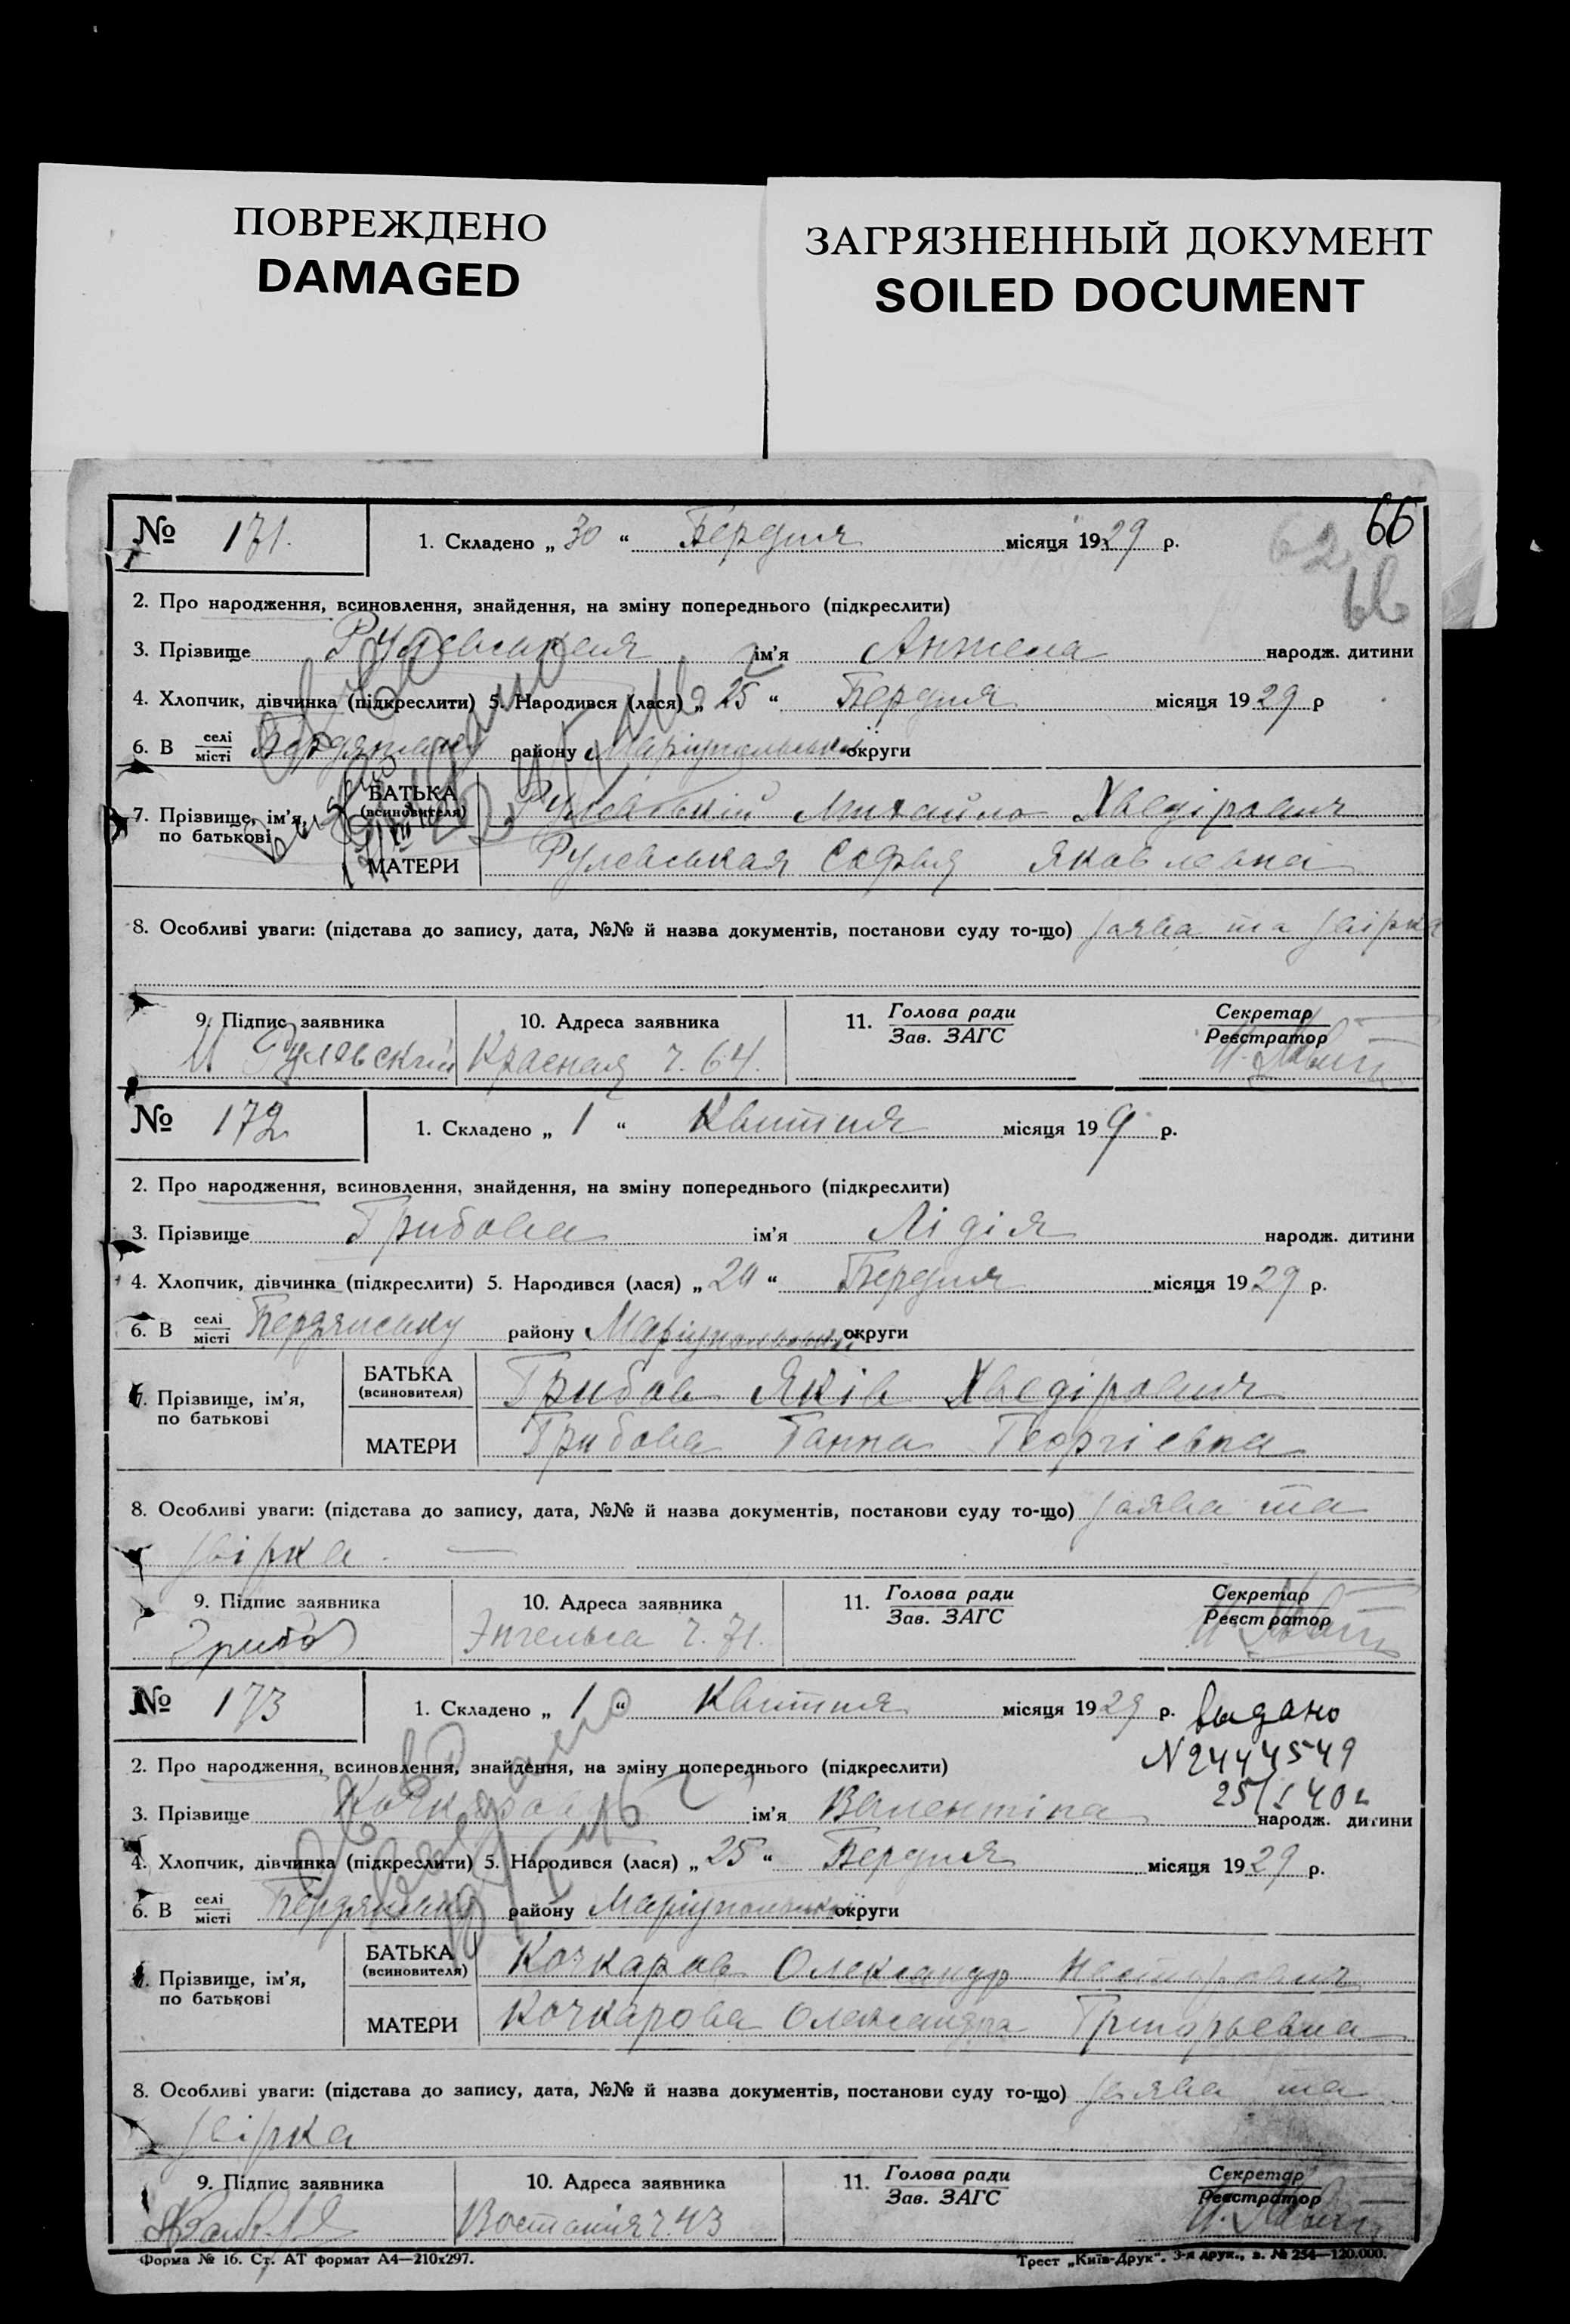 ПОВРЕЖДЕНО
DAMAGED
ЗАГРЯЗНЕННЫЙ ДОКУМЕНТ
SOILED DOCUMENT
66
62
66
№ 171.
1. Складено „ 30 “ Бердня місяця 1929 р.
2. Про народження, всиновлення, знайдення, на зміну попереднього (підкреслити)
3. Прізвище Рулевськая ім'я Анжела народж. дитини
4. Хлопчик, дівчинка (підкреслити) 5. Народився (лася) „ 25 “ Бердня місяця 1929 р
6. В селі місті району Маріупольської округи
7. Прізвище, ім'я, по батькові
БАТЬКА (всиновителя) Рулевській Михайло Хведірович
МАТЕРИ Рулевськая Софья Яковлевна
8. Особливі уваги: (підстава до запису, дата, №№ й назва документів, постанови суду то-що) заява та звірка
9. Підпис заявника Рулевский
10. Адреса заявника Красная ч. 64.
11. Голова ради Зав. ЗАГС
Секретар Реєстратор
№ 172
1. Складено „ 1 “ Квитня місяця 199 р.
2. Про народження, всиновлення, знайдення, на зміну попереднього (підкреслити)
3. Прізвище Грибова ім'я Лідія народж. дитини
4. Хлопчик, дівчинка (підкреслити) 5. Народився (лася) „ “ Бердня місяця 1929 р.
6. В селі місті Бердянську району Маріупольської округи
7. Прізвище, ім'я, по батькові
БАТЬКА (всиновителя) Грибов Яків Хведірович
МАТЕРИ Грибова Ганна Георгіевна
8. Особливі уваги: (підстава до запису, дата, №№ й назва документів, постанови суду то-що) заява та
звірка.
9. Підпис заявника Грибов
10. Адреса заявника Энгельса ч. 71.
11. Голова ради Зав. ЗАГС
Секретар Реєстратор
№ 173
1. Складено „ 1 “ Квитня місяця 1929 р.
выдано
N 2444549
25/I 40 г
2. Про народження, всиновлення, знайдення, на зміну попереднього (підкреслити)
3. Прізвище Кочкарова ім'я Валентіна народж. дитини
4. Хлопчик, дівчинка (підкреслити) 5. Народився (лася) „ 25 “ Бердня місяця 1929 р.
6. В селі місті Бердянську району Маріупольської округи
7. Прізвище, ім'я, по батькові
БАТЬКА (всиновителя) Кочкаров Олександр Несторович
МАТЕРИ Кочкарова Олександра Григорьевна
8. Особливі уваги: (підстава до запису, дата, №№ й назва документів, постанови суду то-що) заява та
звірка
9. Підпис заявника
10. Адреса заявника Востания ч. 43
11. Голова ради Зав. ЗАГС
Секретар Реєстратор
Форма № 16. Ст. АТ формат А4—210х297.
Трест „Київ-Друк“. 3-я друк., з. № 254—120.000.